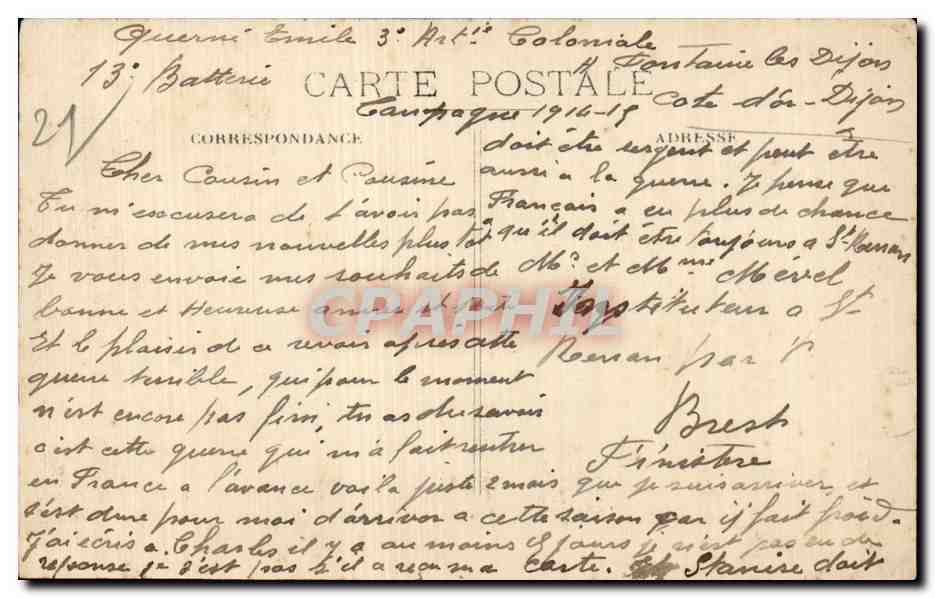 Querné Emile 3º Artie Coloniale
13º Batterie
A Fontaine les Dijon
CARTE POSTALE
Cote d'or - Dijon
Campagne 1914-15
21
CORRESPONDANCE
ADRESSE
Cher Cousin et Cousine
Tu m'excusera de t'avoir pas
donner de mes nouvelles plus tot
Je vous envoie mes souhaits de
bonne et Heureuse année et
Et le plaisir de ce revoir apres cette
guerre terrible, qui pour le moment
n'est encore pas fini, tu as du savoir
c'est cette guerre qui m'a fait rentrer
en France a l'avance voila juste 2 mois que je suis arriver et
s'est dure pour moi d'arriver a cette saison car il fait froid.
J'ai ecris a Charles il y a au moins 15 jours je n'est pas eu de
reponse je s'est pas s'il a reçu ma carte. Stanise doit
doit être sergent et peut être
aussi a la guerre. Je pense que
Français a eu plus de chance
qu'il doit être toujours a St Renan
Mr et Mme Mével
Institiuteur a St
Renan par
Brest
Finistere
CPARPHIL